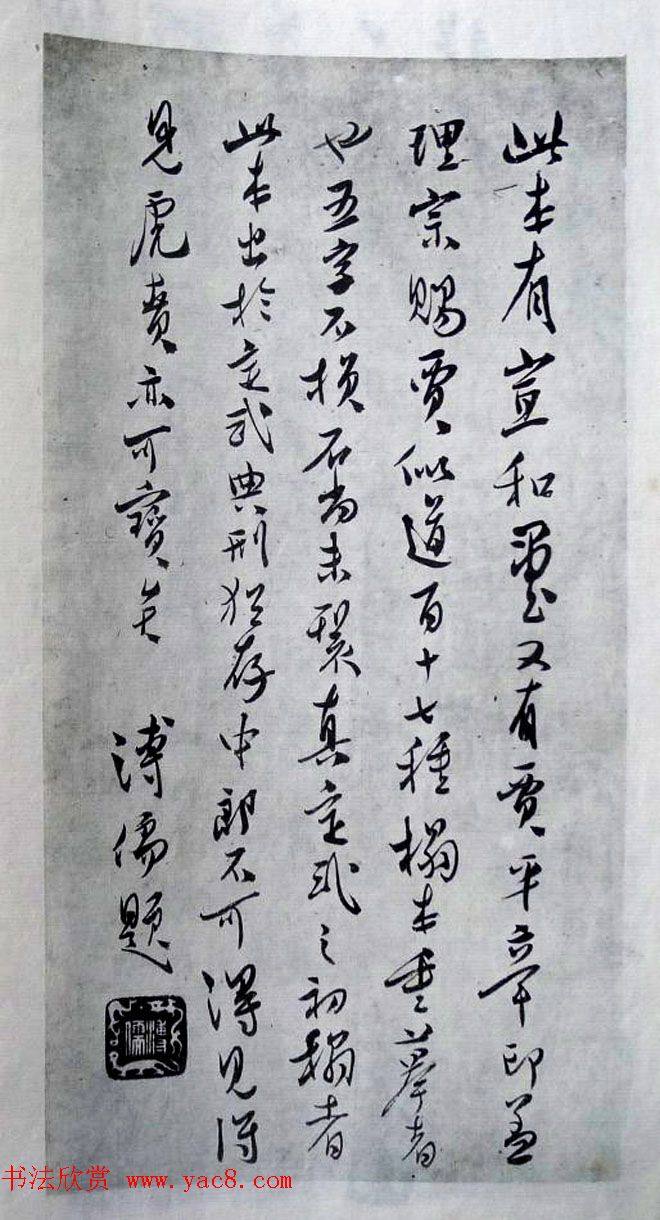 此本有宣和璽又有賈平章印盖
理宗賜賈似道百十七種搨本重摹者
也五字不損石尚未裂真定武之初搨者
此本出於定武典刑猶存中郎不可得見得
見虎賁亦可寶矣 溥儒題
溥儒
书法欣赏 www.yac8.com